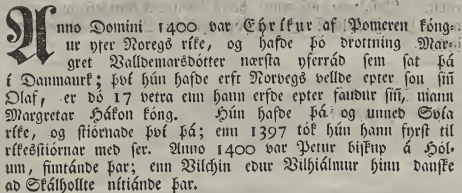 Anno Domini 1400 var Eyrikur af Pomeren kóng-
ur yfer Noregs rike, og hafde þó drottning Mar-
gret Valldemarsdótter nærsta yferráð sem sat þá
i Danmaurk; þvi hún hafde erft Norvegs vellde epter son siñ
Olaf, er dó 17 vetra enn hann erfde epter faudur siñ, mann
Margretar Hákon kóng. Hún hafde þá og unneð Svía
rike, og stiórnade þvi þá; enn 1397 tók hún hann fyrst til
rikesstiórnar með ser. Anno 1400 var Petur biskup á Hól-
um, fimtánde þar; enn Vilchin edur Vilhiálmur hinn danske
að Skálhollte nitiánde þar.